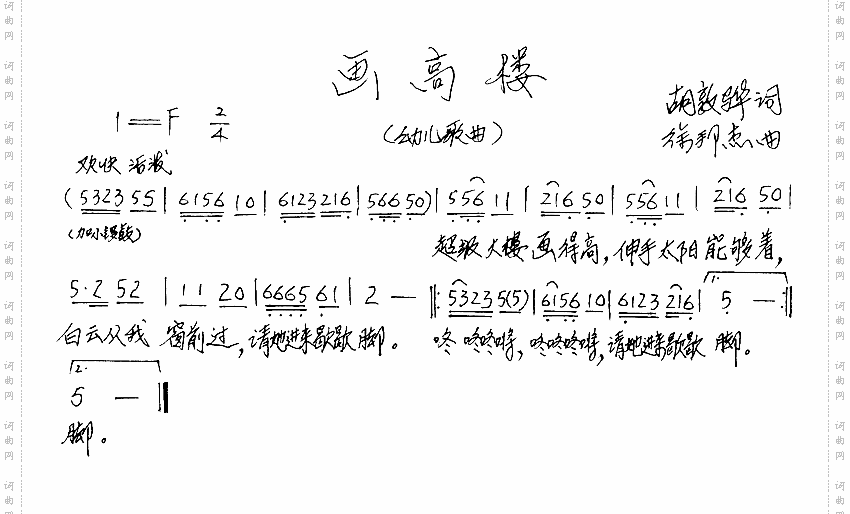 画高楼
1=F 2/4
(幼儿歌曲)
胡敦骅词
徐邦杰曲
欢快 活泼
( 5323 55 | 6156 10 | 6123 216 | 566 50 ) | 556 11 | 216 50 | 556 11 | 216 50 |
(加小锣鼓)
超级大楼画得高,伸手太阳能够着,
5·2 52 | 11 20 | 6665 61 | 2 — |: 5323 5(5) | 6156 10 | 6123 216 | 1. 5 — :|
白云从我窗前过,请她进来歇歇脚。 咚咚咚锵,咚咚咚锵,请她进来歇歇脚。
2.
5 —
脚。
词曲网